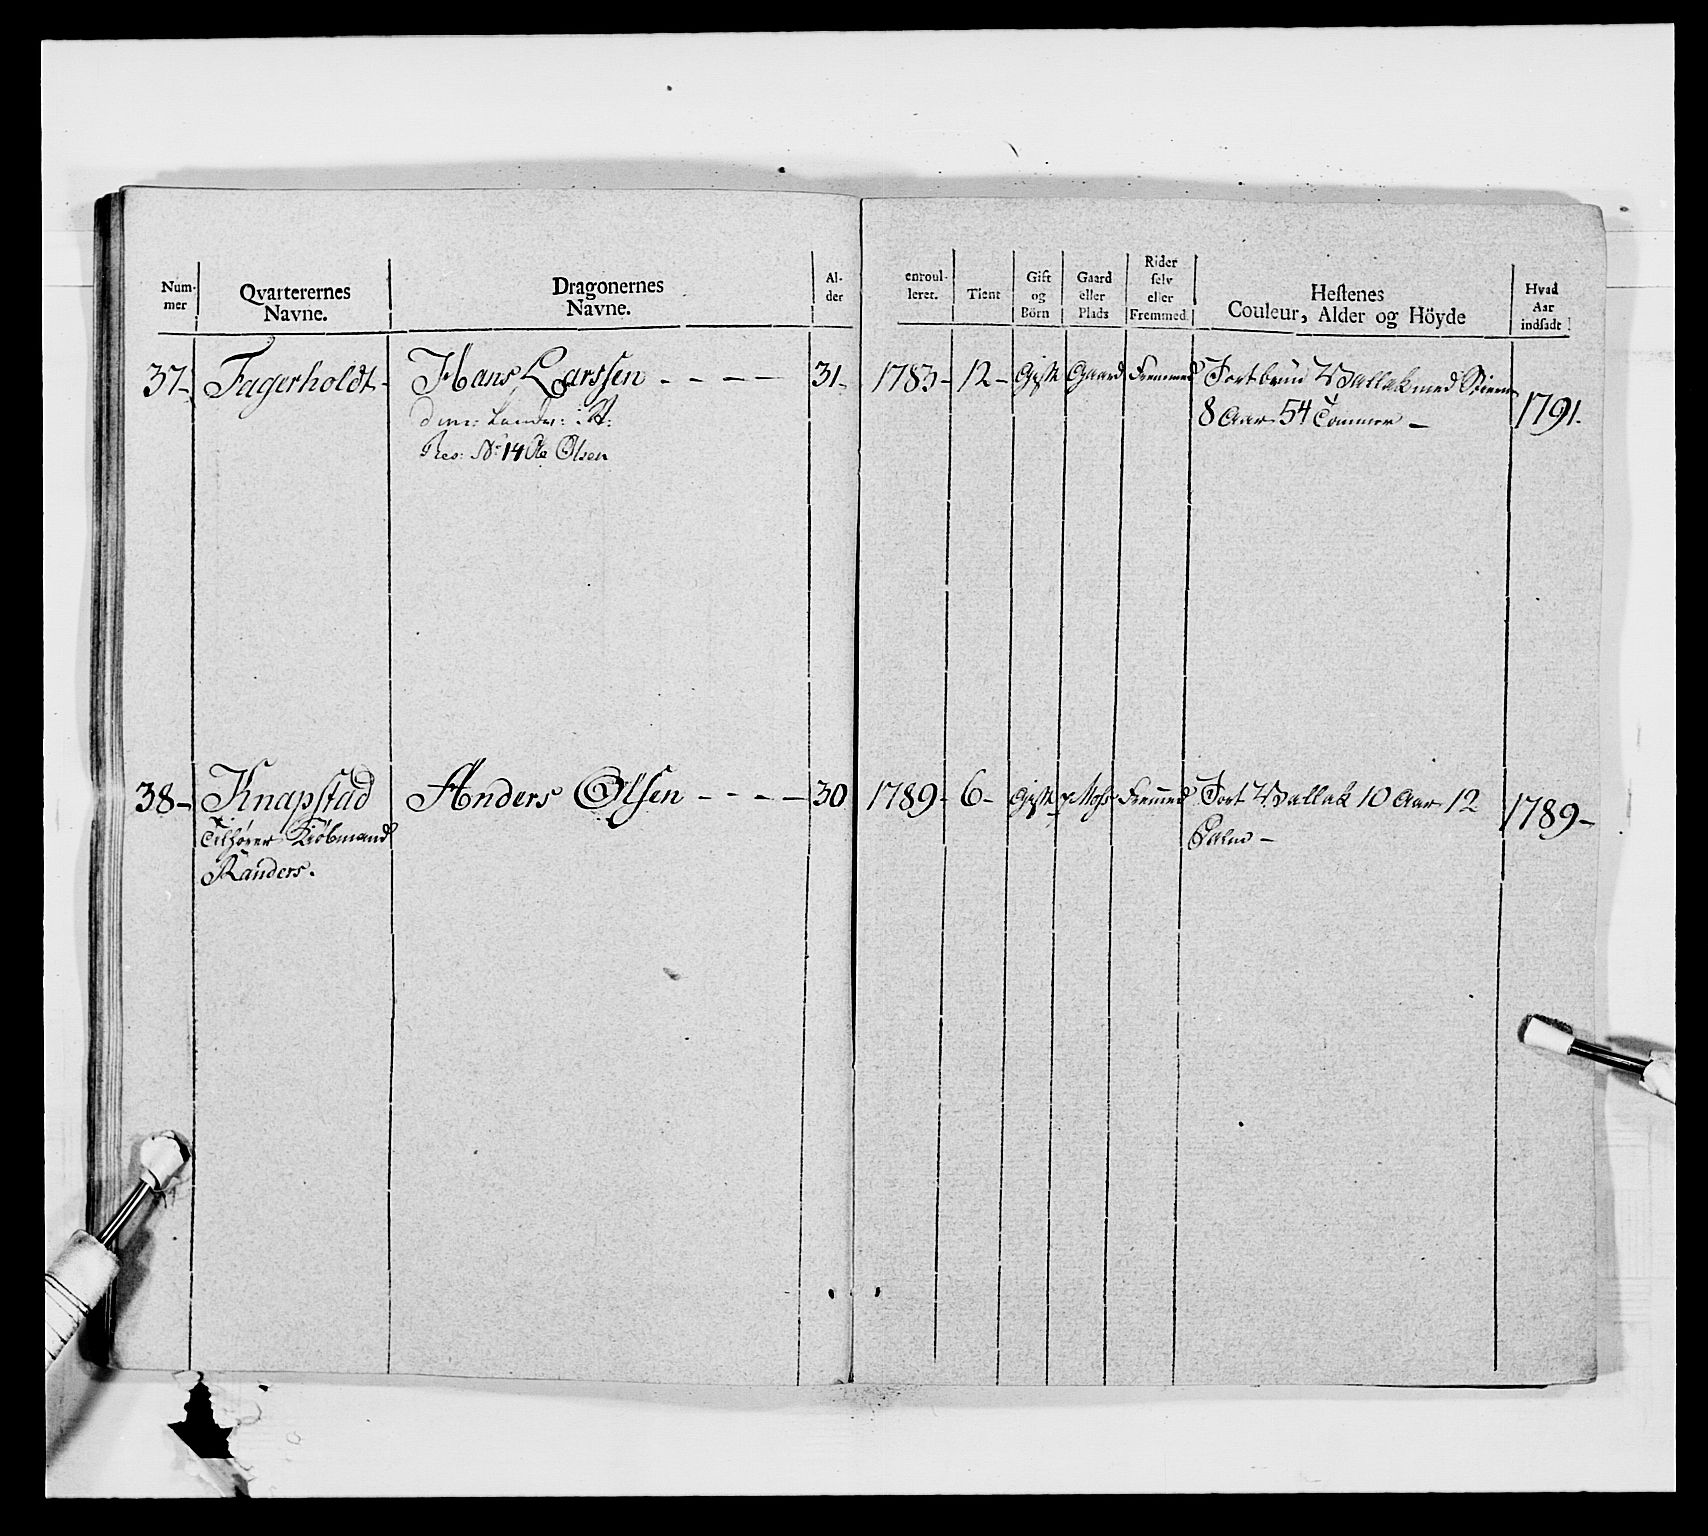 Num-
mer
Qvarterernes
Navne.
Dragonernes
Navne.
Al-
der
enroul-
leret.
Tient
Gift
og
Börn
Gaard
eller
Plads
Rider
selv
eller
Fremmed.
Hestenes
Couleur, Alder og Höyde
Hvad
Aar
indsadt
37- Fagerholdt- Hans Larssen - - - - 31- 1783- 12- Gift Gaard Fremmed Sortbrun Wallak med Stierne 1791.
8 Aar 54 Tommer -
Res: No 14 Ole Olsen
38- Knapstad Anders Olsen - - - - 30 1789- 6- Gift Fremmed Sort Wallak 10 Aar 12 1789-
Tilhører Kiöbmand Palm -
Randers.